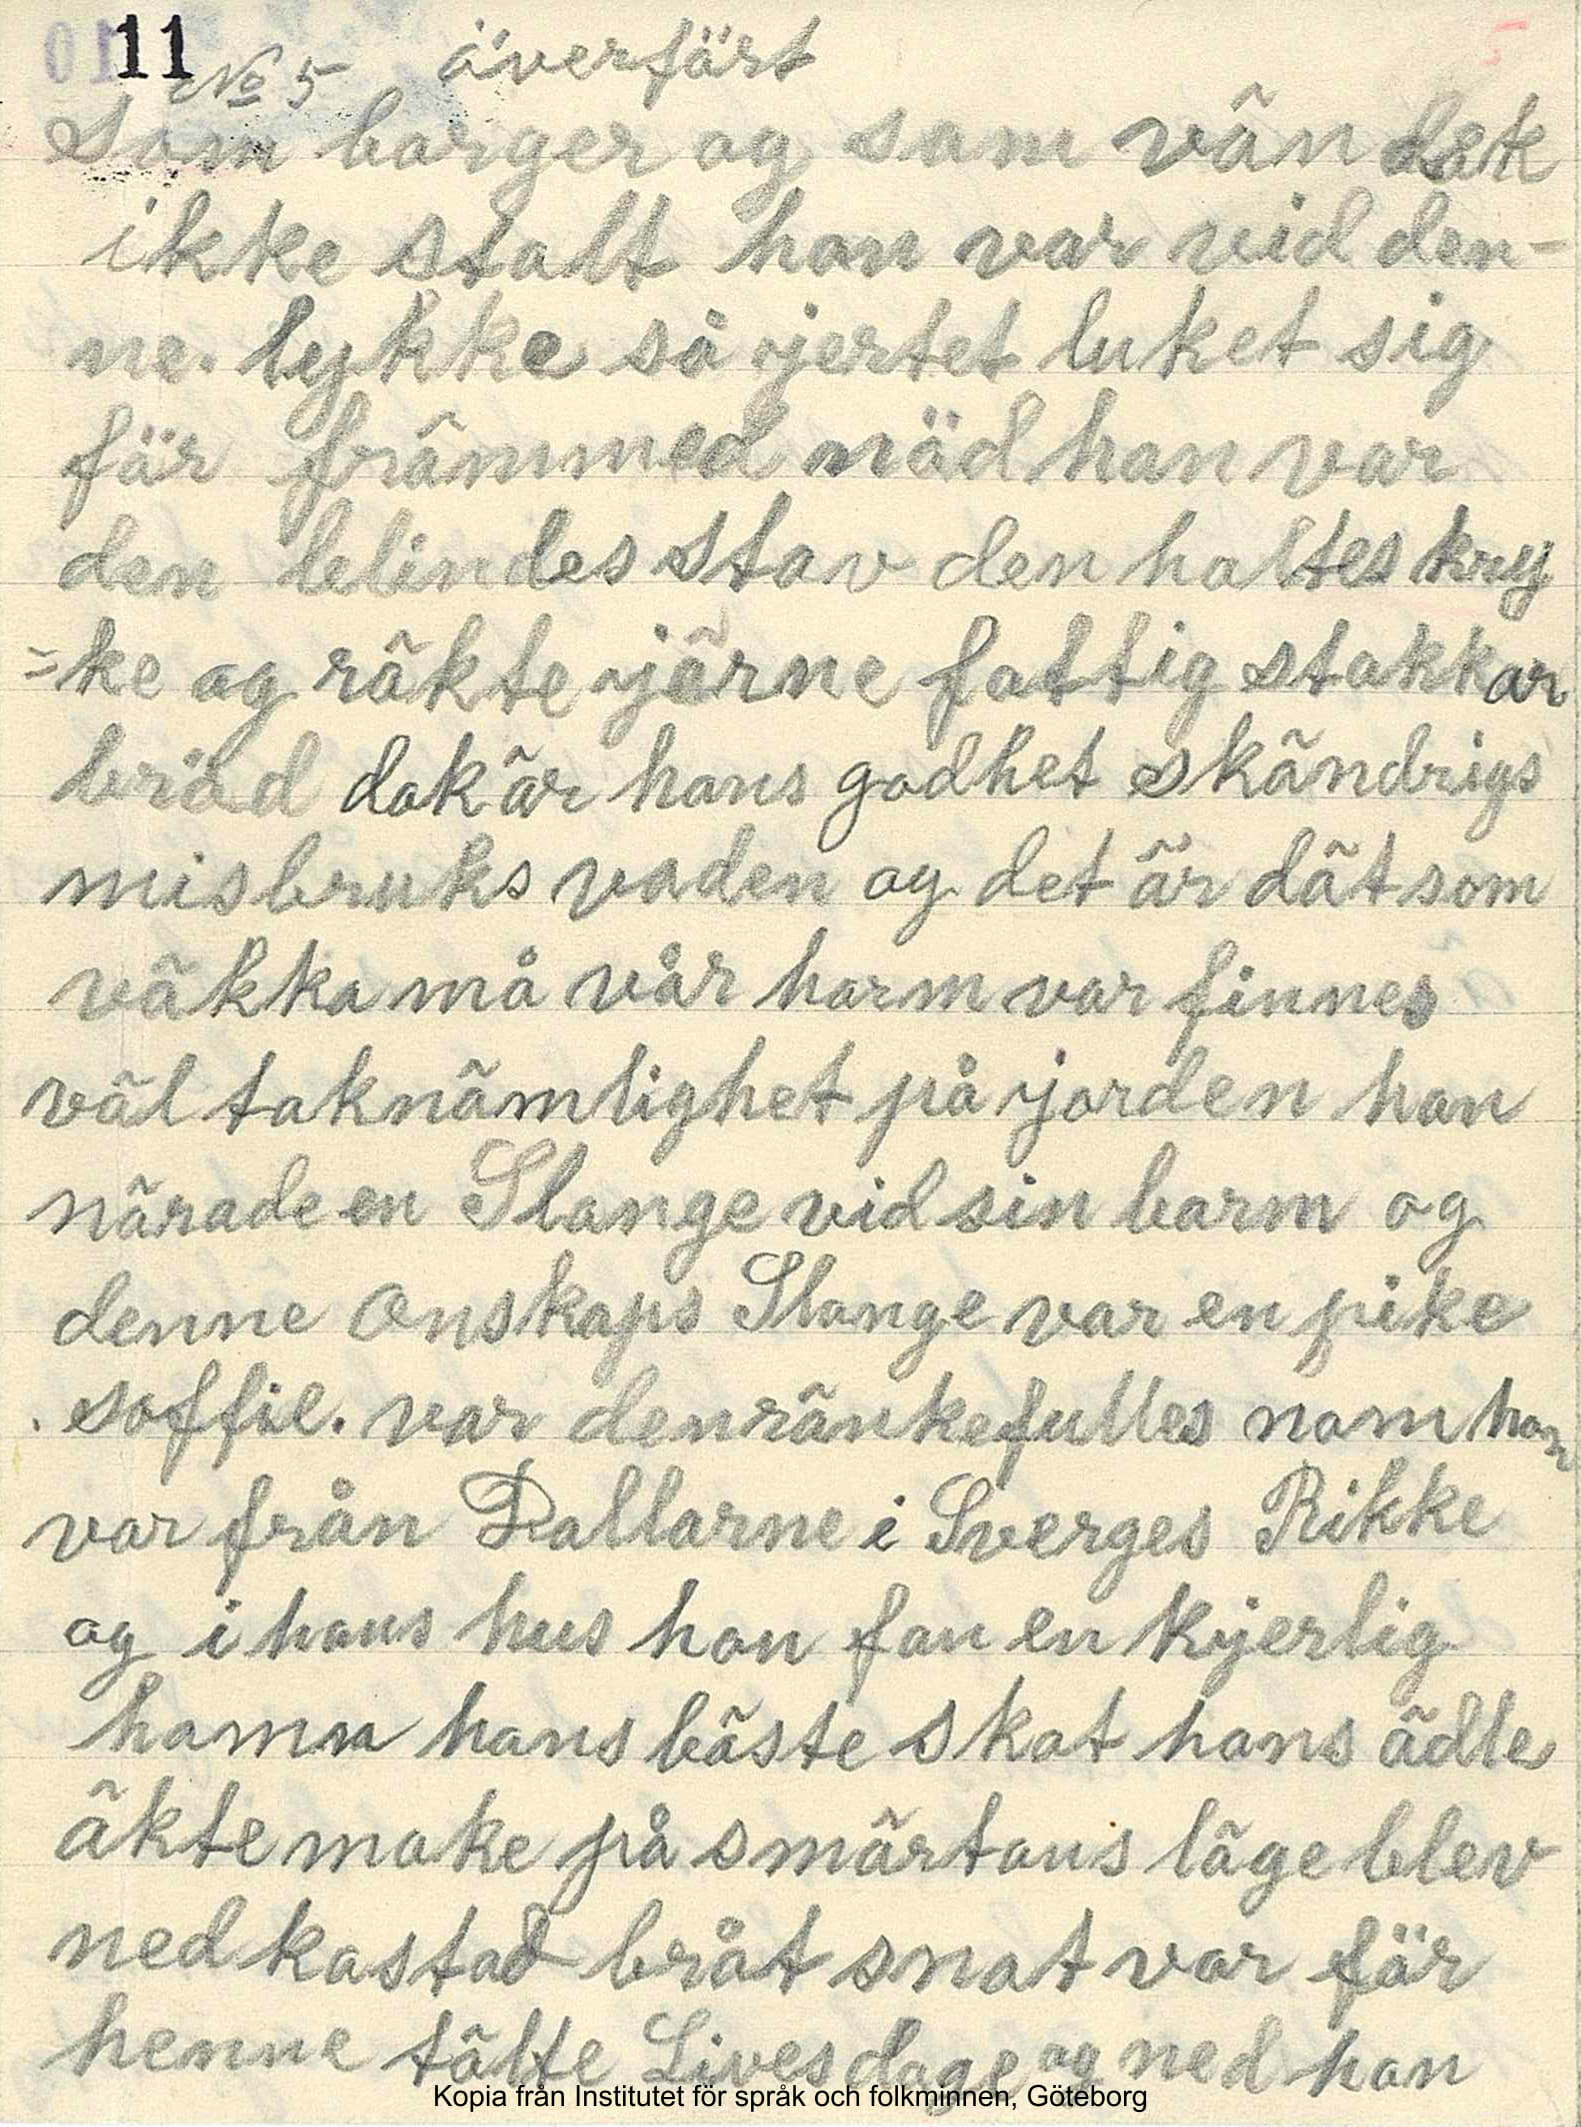 11 No 5 överfört 5
som borger og som vân dek
ikke stolt han var vid den-
ne. lykke så jertet luket sig
för frâmmed nöd han var
den blindes stav den haltes kry
=ke og râkte jârne fattig stakkar
bröd dok âr hans godhet skândrigs
misbruks vaden og det âr dât som
vâkka må vår harm var finnes
vâl taknâmlighet på jorden han
nârade en Slange vid sin barm og
denne Onskaps Slange var en pike
. soffie. var den rânkefulles nam hon
var från Dallarne i Sverges Rikke
og i hans hus hon fan en kjerlig
hamn hans bâste skat hans âdle
âkte make på smârtans lâge blev
ned kastad bråt snat var för
henne tâlte Lives dage og ned hon
Kopia från Institutet för språk och folkminnen, Göteborg